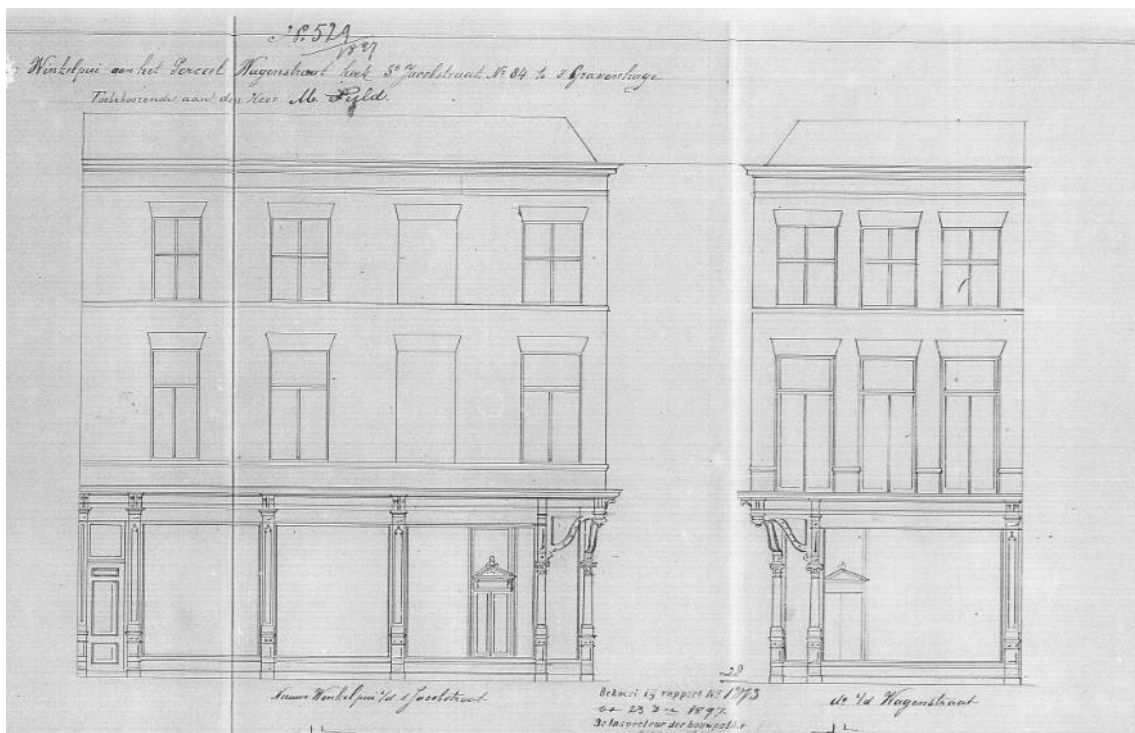 No. 529
1897
Winkelpui aan het Perceel Wagenstraat hoek St. Jacobstraat No 84 te s Gravenhage
Toebehoorende aan den Heer M.
Nieuwe Winkelpui a/d s Jacobstraat
Behoort bij rapport No 1773
23 Dec 1897.
De Inspecteur der bouwpolitie
do a/d Wagenstraat